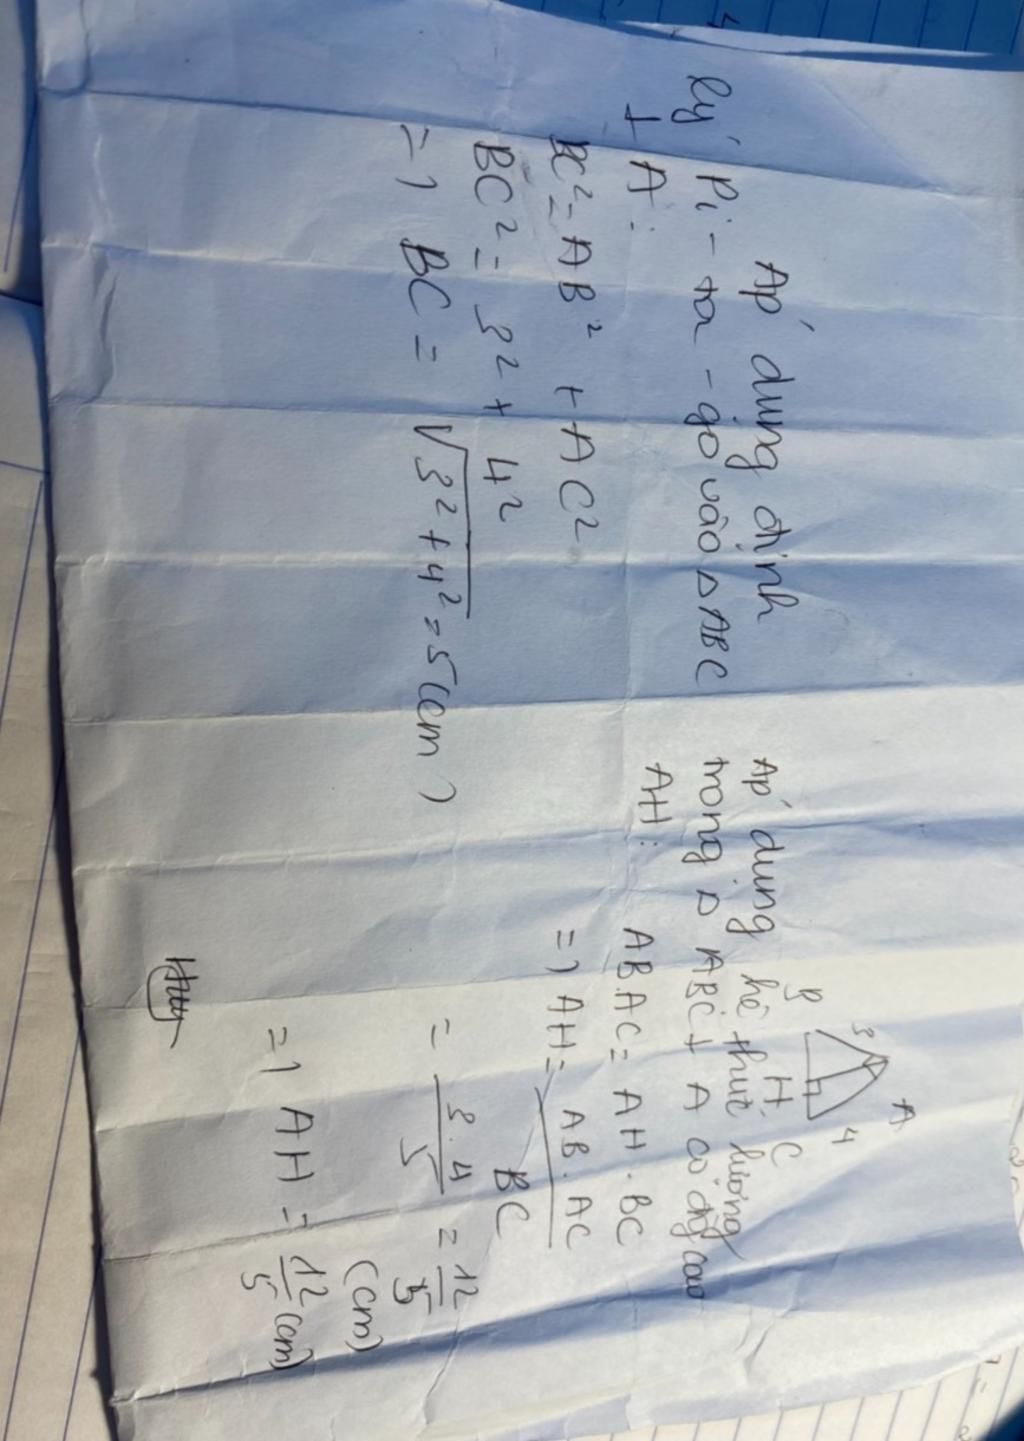 Áp dụng định
lý Pi-ta-go vào Δ ABC
⊥ A:
BC² = AB² + AC²
BC² = 3² + 4²
=> BC = √3² + 4² = 5 (cm)
A
3
4
B
H
C
Áp dụng hệ thức lượng
trong Δ ABC ⊥ A có đg cao
AH:
AB.AC = AH.BC
=> AH = AB.AC
BC
= 3.4 = 12
5 5
(cm)
=> AH = 12 (cm)
5